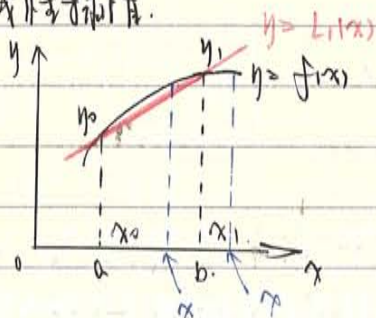 y = L₁(x)
y
y₁
y = f(x)
y₀
x₀
x₁
0
a
b.
x
x
x